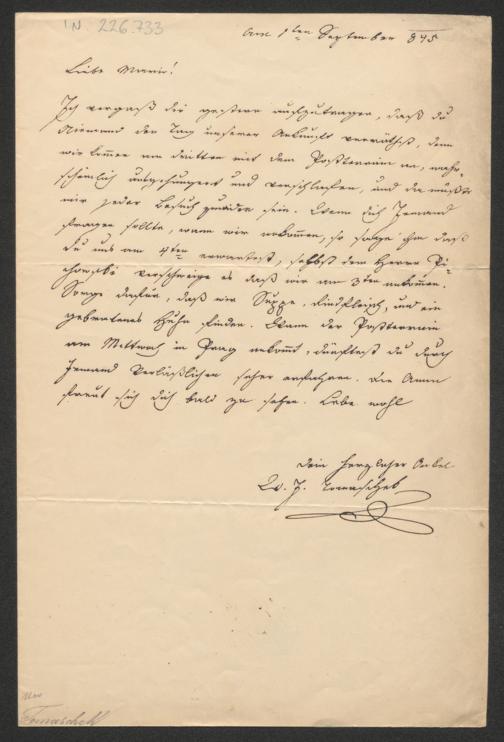 IN. 226.733
Am 1ten September 845
Liebe Marie!
Ich vergaß dir gestern aufzutragen, daß du
Niemand den Tag unserer Ankunft verräthst, denn
wir kommen am dritten mit dem Posttrain an, wahr-
scheinlich ausgehungert und verschlafen, und da müßte
mir jeder Besuch zuwider sein. Wenn dich Jemand
fragen sollte, wann wir ankommen, so sage ihm daß
du uns am 4ten erwartest, selbst dem Herrn
verschweige es daß wir am 3ten ankommen.
Sorge dafür, daß wir Suppe, Rindfleisch, und ein
gebratenes Huhn finden. Wann der Posttrain
am Mittwoch in Prag ankommt, dürftest du durch
Jemand Verläßlichen sicher erfahren. Die
freut sich dich bald zu sehen. Lebe wohl
Dein herzlicher Onkel
W. J. Tomaschek
Tomaschek